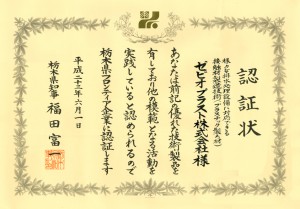 認証状
様々な排水処理設備に対応できる
接触材製造技術「プラスチック製ろ材」
ゼビオプラスト株式会社 様
あなたは前記の優れた技術・製品を
有しており他の模範となる活動を
実践していると認められるので
栃木県フロンティア企業に認証します
平成二十三年六月一日
栃木県知事 福田富一